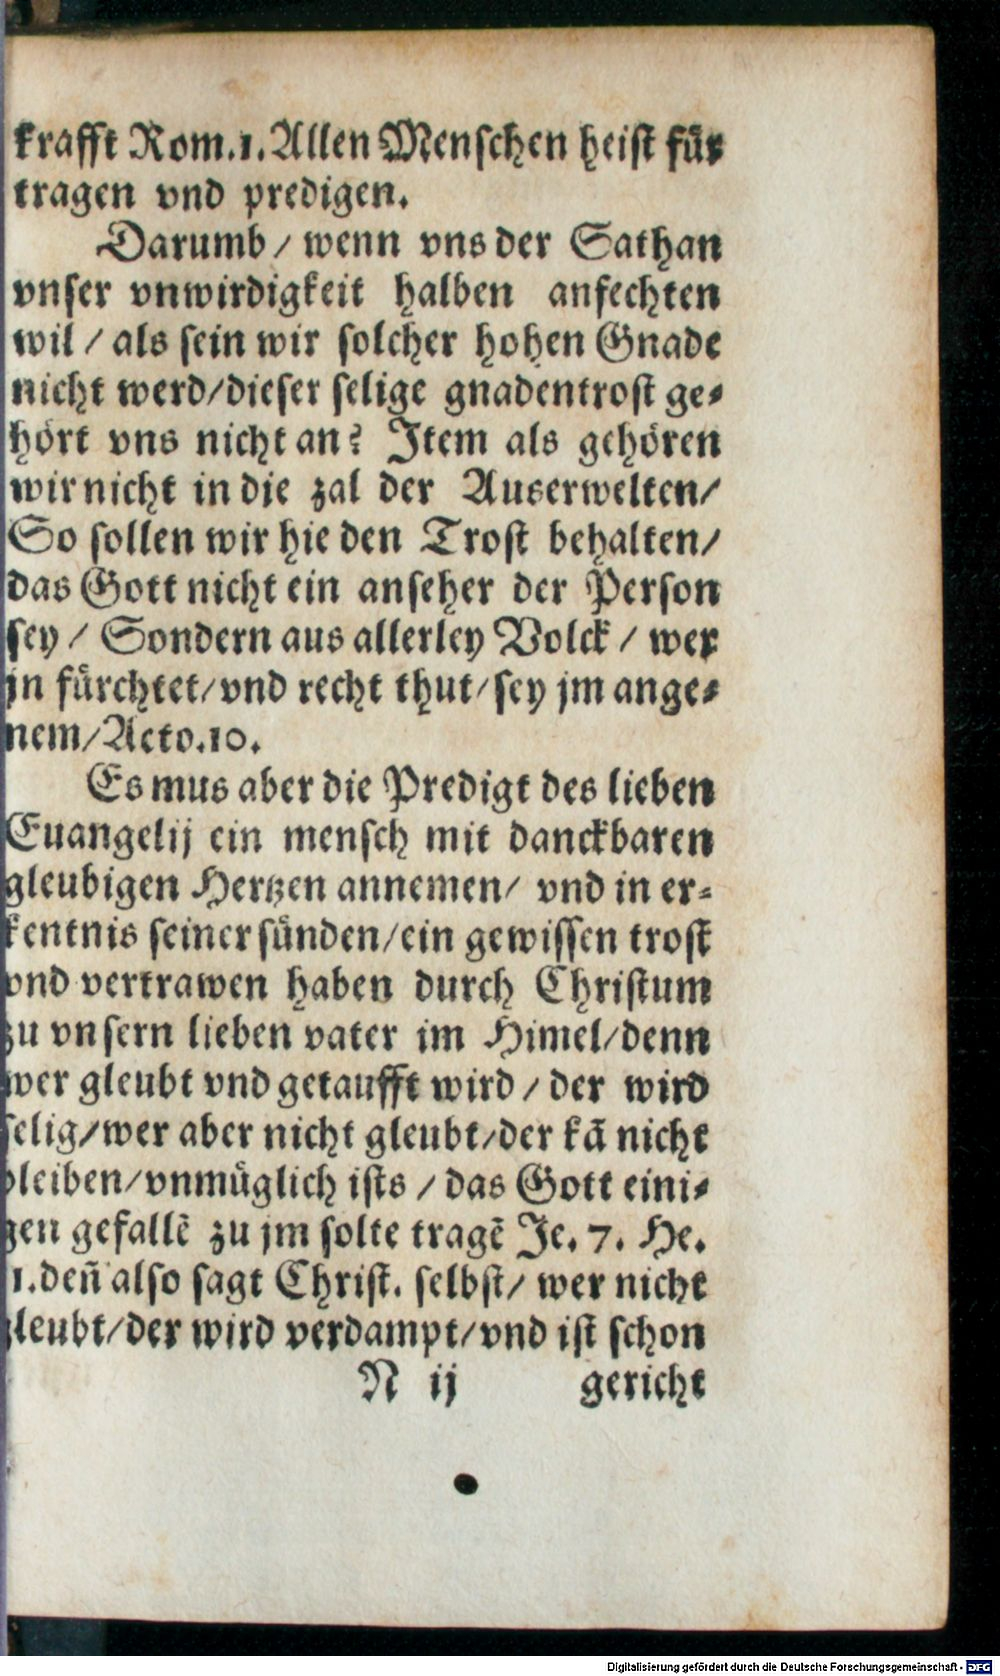 krafft Rom.1. Allen Menschen heist für
tragen vnd predigen.
Darumb / wenn vns der Sathan
vnser vnwirdigkeit halben anfechten
wil / als sein wir solcher hohen Gnade
nicht werd/dieser selige gnadentrost ge⸗
hört vns nicht an? Item als gehören
wir nicht in die zal der Auserwelten/
So sollen wir hie den Trost behalten/
das Gott nicht ein anseher der Person
sey / Sondern aus allerley Volck / wer
jn fürchtet/vnd recht thut/sey jm ange⸗
nem/Acto.10.
Es mus aber die Predigt des lieben
Euangelij ein mensch mit danckbaren
gleubigen Hertzen annemen/ vnd in er⸗
kentnis seiner sünden/ein gewissen trost
vnd vertrawen haben durch Christum
zu vnsern lieben vater im Himel/denn
wer gleubt vnd getaufft wird / der wird
selig/wer aber nicht gleubt/der kā nicht
bleiben/vnmüglich ists / das Gott eini⸗
gen gefallē zu jm solte tragē Je. 7. He.
1.deñ also sagt Christ. selbst/ wer nicht
gleubt/der wird verdampt/vnd ist schon
N ij gericht
Digitalisierung gefördert durch die Deutsche Forschungsgemeinschaft - DFG